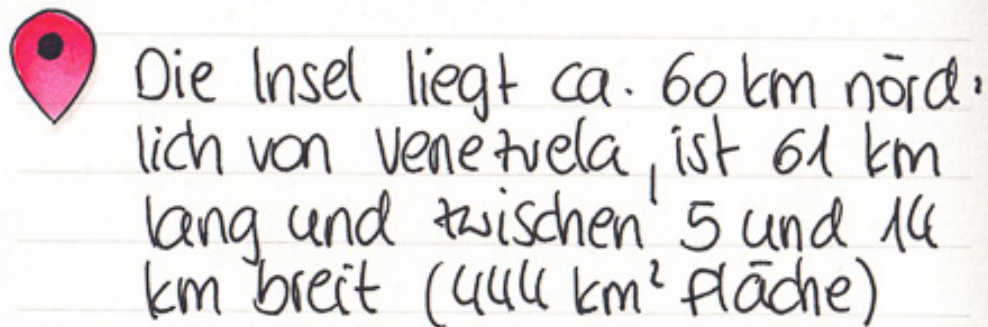 Die Insel liegt ca. 60 km nörd-
lich von Venezuela, ist 61 km
lang und zwischen 5 und 14
km breit (444 km² Fläche)